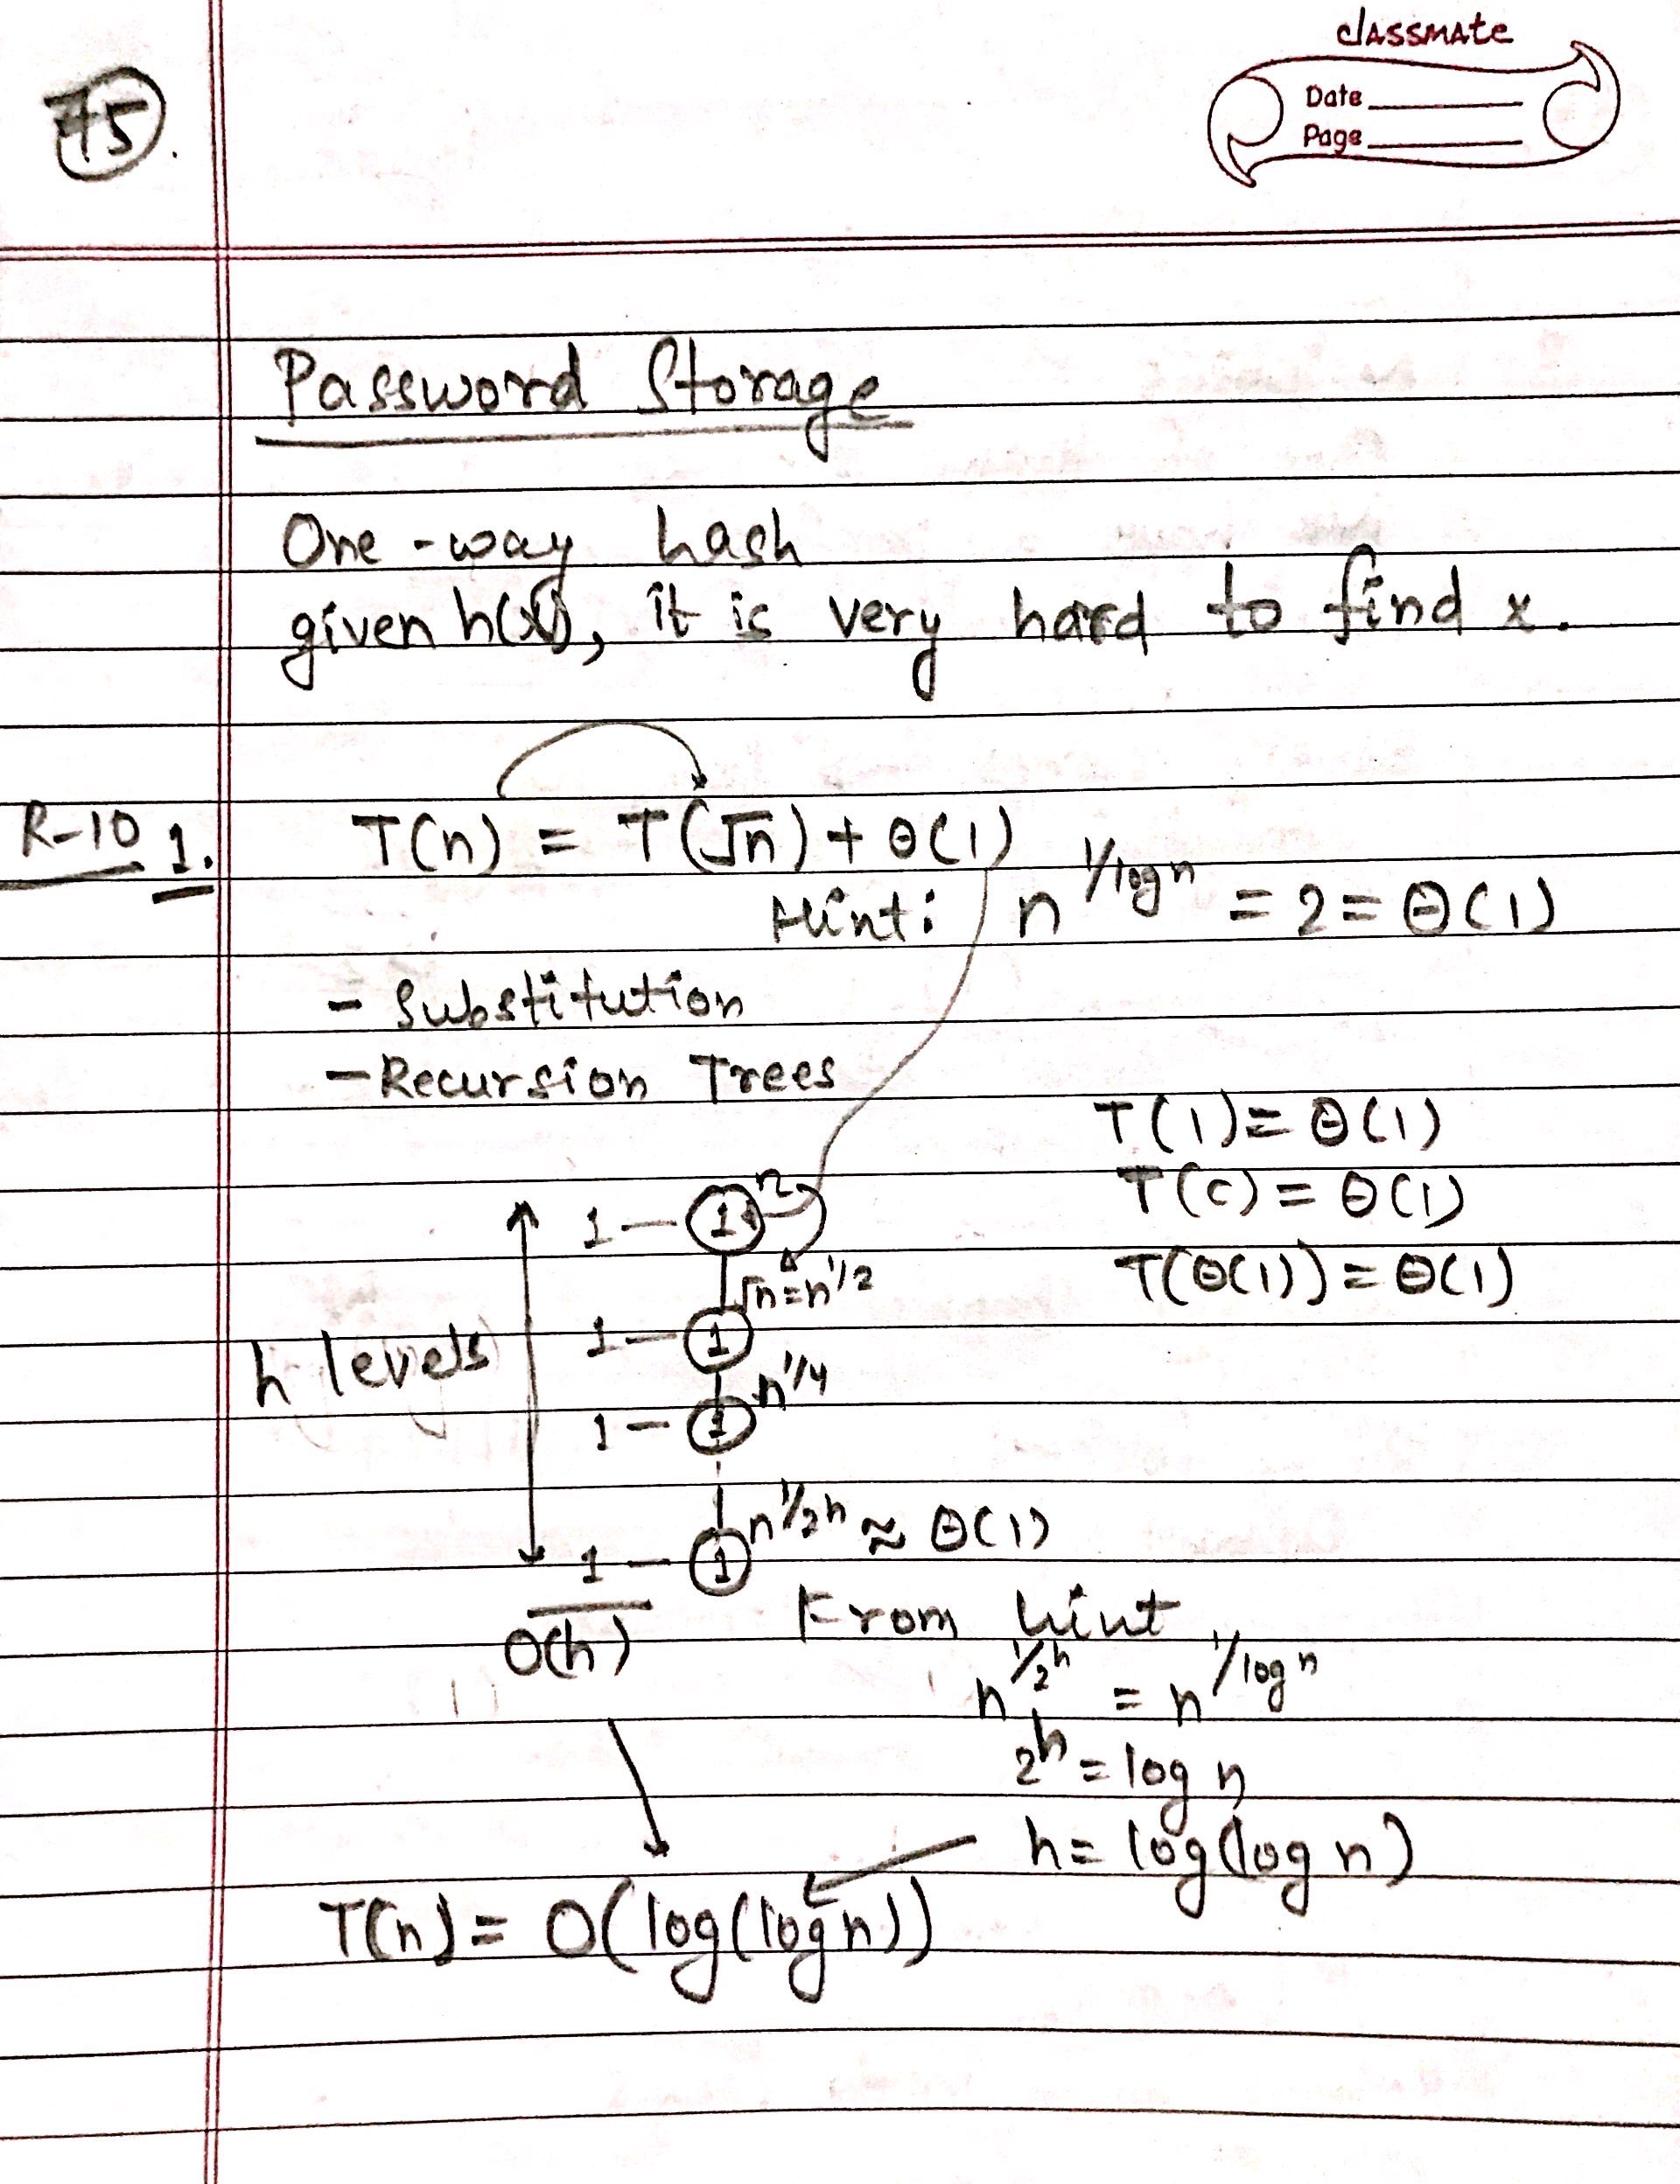 75.
classmate
Date
Page
Password Storage
One-way hash
given h(x), it is very hard to find x.
R-10 1. T(n) = T(√n) + Θ(1)
Hint: n^1/log n = 2 = Θ(1)
- Substitution
- Recursion Trees
T(1) = Θ(1)
T(c) = Θ(1)
T(Θ(1)) = Θ(1)
h levels
1 — 1 n
√n = n^1/2
1 — 1
n^1/4
1 — 1
n^1/2^h ≈ Θ(1)
1 — 1
O(h)
From hint
n^1/2^h = n^1/log n
2^h = log n
h = log(log n)
T(n) = O(log(log n))